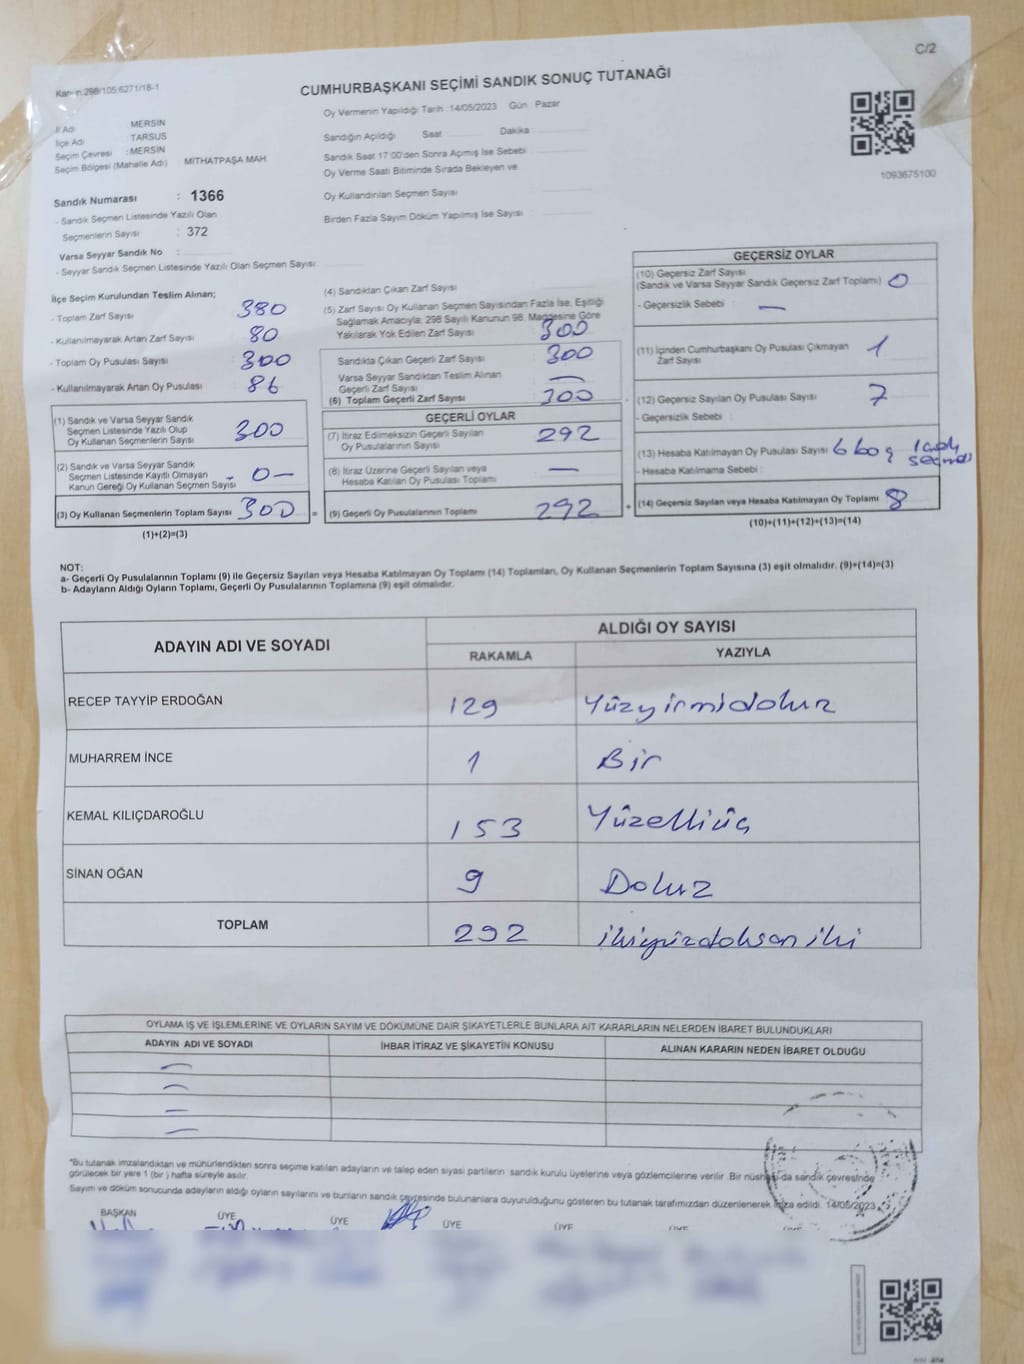 C/2
Kanun:298/105;6271/18-1
CUMHURBAŞKANI SEÇİMİ SANDIK SONUÇ TUTANAĞI
Oy Vermenin Yapıldığı Tarih : 14/05/2023 Gün : Pazar
İl Adı MERSİN
İlçe Adı TARSUS
Seçim Çevresi : MERSİN
Seçim Bölgesi (Mahalle Adı) MİTHATPAŞA MAH
Sandığın Açıldığı Saat Dakika
Sandık Saat 17:00'den Sonra Açımış İse Sebebi
Oy Verme Saati Bitiminde Sırada Bekleyen ve
Oy Kullandırılan Seçmen Sayısı
Birden Fazla Sayım Döküm Yapılmış İse Sayısı
1093675100
Sandık Numarası : 1366
- Sandık Seçmen Listesinde Yazılı Olan
Seçmenlerin Sayısı : 372
Varsa Seyyar Sandık No :
- Seyyar Sandık Seçmen Listesinde Yazılı Olan Seçmen Sayısı:
İlçe Seçim Kurulundan Teslim Alınan;
- Toplam Zarf Sayısı : 380
- Kullanılmayarak Artan Zarf Sayısı : 80
- Toplam Oy Pusulası Sayısı : 300
- Kullanılmayarak Artan Oy Pusulası : 86
(1) Sandık ve Varsa Seyyar Sandık
Seçmen Listesinde Yazılı Olup
Oy Kullanan Seçmenlerin Sayısı 300
(2) Sandık ve Varsa Seyyar Sandık
Seçmen Listesinde Kayıtlı Olmayan
Kanun Gereği Oy Kullanan Seçmen Sayısı 0 —
(3) Oy Kullanan Seçmenlerin Toplam Sayısı 300 =
(1)+(2)=(3)
(4) Sandıktan Çıkan Zarf Sayısı :
(5) Zarf Sayısı Oy Kullanan Seçmen Sayısından Fazla İse, Eşitliği
Sağlamak Amacıyla; 298 Sayılı Kanunun 98. Maddesine Göre
Yakılarak Yok Edilen Zarf Sayısı : 300
Sandıkta Çıkan Geçerli Zarf Sayısı : 300
Varsa Seyyar Sandıktan Teslim Alınan
Geçerli Zarf Sayısı : —
(6) Toplam Geçerli Zarf Sayısı : 300
GEÇERLİ OYLAR
(7) İtiraz Edilmeksizin Geçerli Sayılan
Oy Pusulalarının Sayısı : 292
(8) İtiraz Üzerine Geçerli Sayılan veya
Hesaba Katılan Oy Pusulası Toplamı : —
(9) Geçerli Oy Pusulalarının Toplamı : 292 +
GEÇERSİZ OYLAR
(10) Geçersiz Zarf Sayısı
(Sandık ve Varsa Seyyar Sandık Geçersiz Zarf Toplamı) : 0
- Geçersizlik Sebebi : —
(11) İçinden Cumhurbaşkanı Oy Pusulası Çıkmayan
Zarf Sayısı : 1
(12) Geçersiz Sayılan Oy Pusulası Sayısı : 7
- Geçersizlik Sebebi :
(13) Hesaba Katılmayan Oy Pusulası Sayısı :
- Hesaba Katılmama Sebebi :
(14) Geçersiz Sayılan veya Hesaba Katılmayan Oy Toplamı 8
(10)+(11)+(12)+(13)=(14)
NOT:
a- Geçerli Oy Pusulalarının Toplamı (9) ile Geçersiz Sayılan veya Hesaba Katılmayan Oy Toplamı (14) Toplamları, Oy Kullanan Seçmenlerin Toplam Sayısına (3) eşit olmalıdır. (9)+(14)=(3)
b- Adayların Aldığı Oyların Toplamı, Geçerli Oy Pusulalarının Toplamına (9) eşit olmalıdır.
ADAYIN ADI VE SOYADI ALDIĞI OY SAYISI
RAKAMLA YAZIYLA
RECEP TAYYİP ERDOĞAN 129 Yüzyirmidokuz
MUHARREM İNCE 1 Bir
KEMAL KILIÇDAROĞLU 153 Yüzelliüç
SİNAN OĞAN 9 Dokuz
TOPLAM 292 ikiyüzdoksan iki
OYLAMA İŞ VE İŞLEMLERİNE VE OYLARIN SAYIM VE DÖKÜMÜNE DAİR ŞİKAYETLERLE BUNLARA AİT KARARLARIN NELERDEN İBARET BULUNDUKLARI
ADAYIN ADI VE SOYADI İHBAR İTİRAZ VE ŞİKAYETİN KONUSU ALINAN KARARIN NEDEN İBARET OLDUĞU
—
—
—
—
*Bu tutanak imzalandıktan ve mühürlendikten sonra seçime katılan adayların ve talep eden siyasi partilerin sandık kurulu üyelerine veya gözlemcilerine verilir. Bir nüshası da sandık çevresinde
görülecek bir yere 1 (bir) hafta süreyle asılır.
Sayım ve döküm sonucunda adayların aldığı oyların sayılarını ve bunların sandık çevresinde bulunanlara duyurulduğunu gösteren bu tutanak tarafımızdan düzenlenerek imza edildi. 14/05/2023
BAŞKAN ÜYE ÜYE ÜYE ÜYE ÜYE